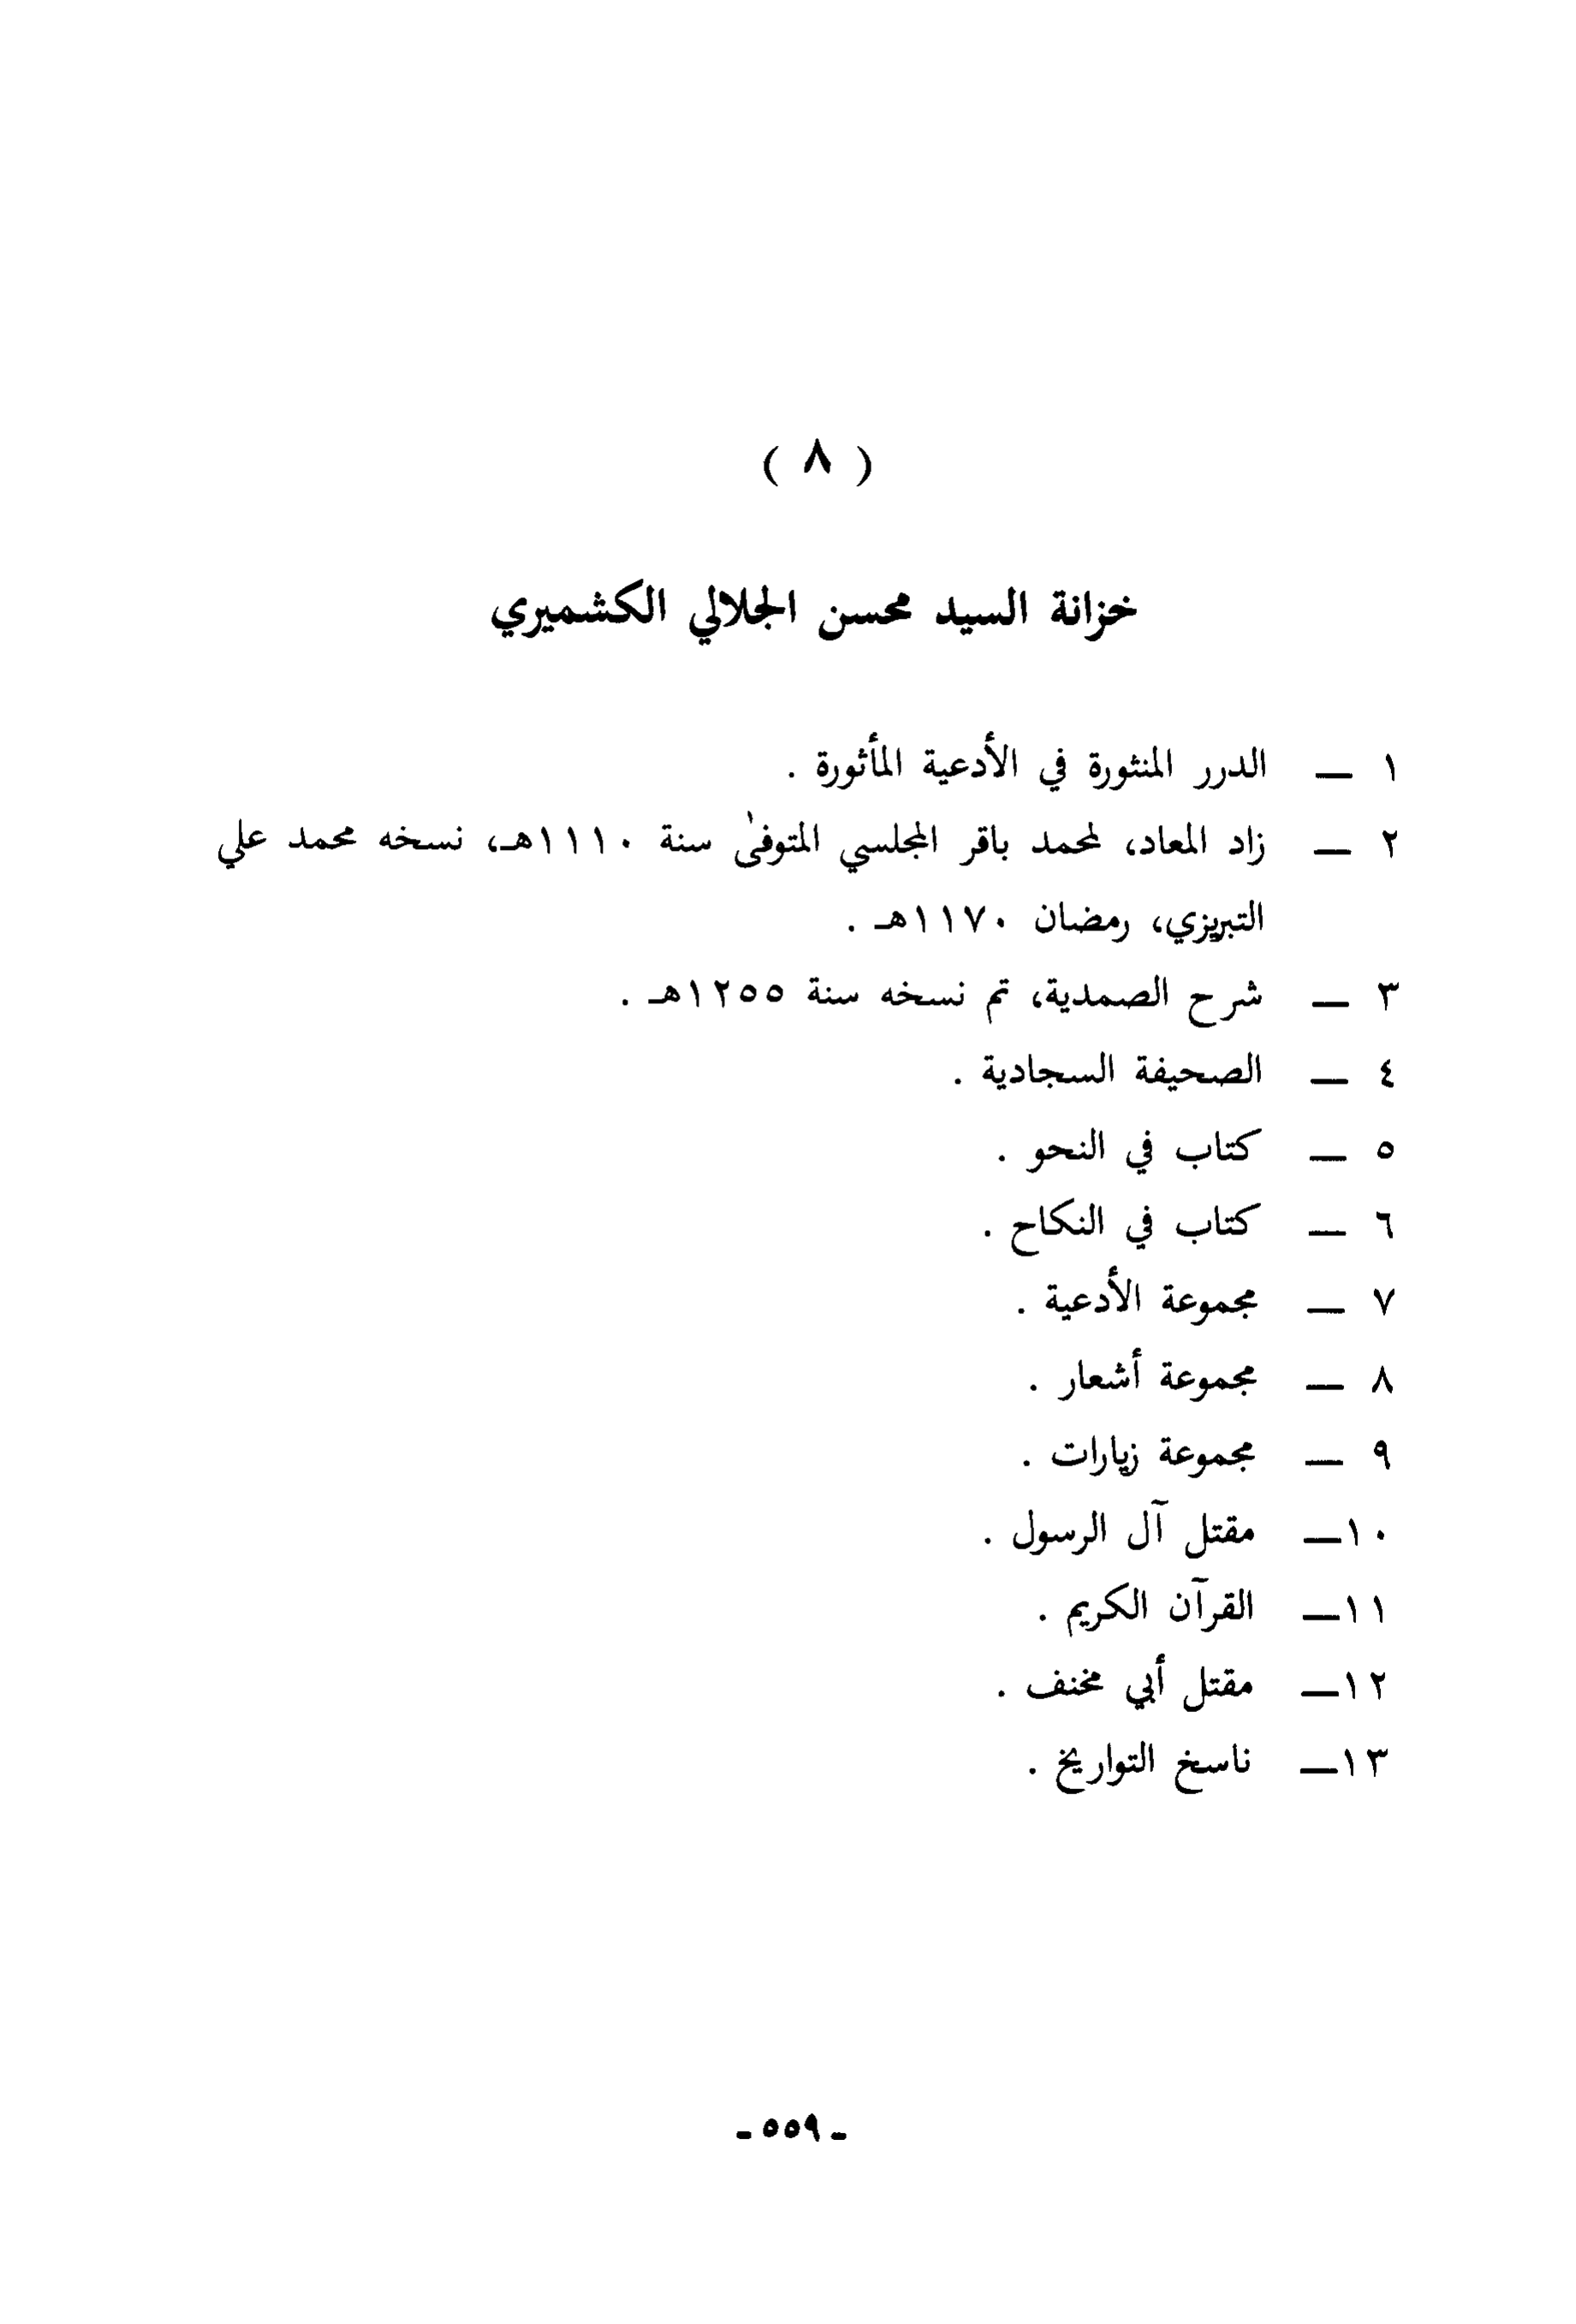 ( ٨ )
خزانة السيد محسن الجلالي الكشميري
١ — الدرر المنثورة في الأدعية المأثورة .
٢ — زاد المعاد، لمحمد باقر المجلسي المتوفىٰ سنة ١١١٠هـ، نسخه محمد علي
التبريزي، رمضان ١١٧٠هـ .
٣ — شرح الصمدية، تم نسخه سنة ١٢٥٥هـ .
٤ — الصحيفة السجادية .
٥ — كتاب في النحو .
٦ — كتاب في النكاح .
٧ — مجموعة الأدعية .
٨ — مجموعة أشعار .
٩ — مجموعة زيارات .
١٠— مقتل آل الرسول .
١١— القرآن الكريم .
١٢— مقتل أبي مخنف .
١٣— ناسخ التواريخ .
- ٥٥٩ -